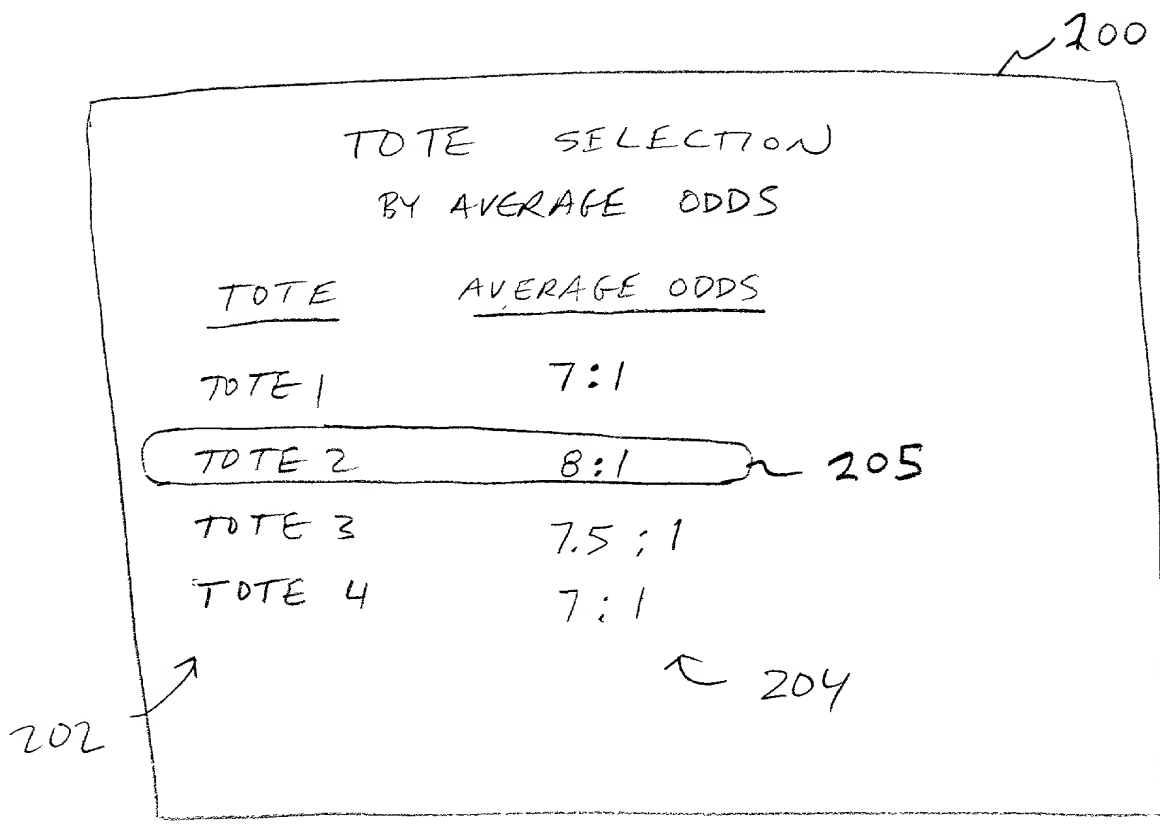 200
TOTE SELECTION
BY AVERAGE ODDS
TOTE AVERAGE ODDS
TOTE 1 7:1
TOTE 2 8:1 205
TOTE 3 7.5:1
TOTE 4 7:1
204
202